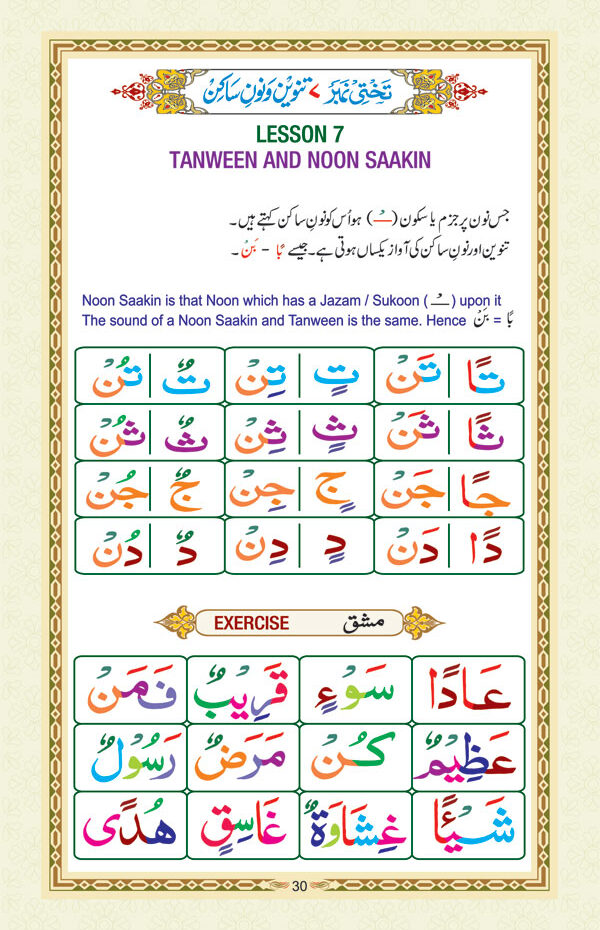 تختی نمبر ۷ تنوین و نونِ ساکن
LESSON 7
TANWEEN AND NOON SAAKIN
جس نون پر جزم یا سکون (ـْـ) ہو اُس کو نونِ ساکن کہتے ہیں۔
تنوین اور نونِ ساکن کی آواز یکساں ہوتی ہے۔ جیسے بًا - بَنْ۔
Noon Saakin is that Noon which has a Jazam / Sukoon (ـْـ) upon it
The sound of a Noon Saakin and Tanween is the same. Hence بَنْ = بًا
تًا تَنْ تٍ تِنْ تٌ تُنْ
ثًا ثَنْ ثٍ ثِنْ ثٌ ثُنْ
جًا جَنْ جٍ جِنْ جٌ جُنْ
دًا دَنْ دٍ دِنْ دٌ دُنْ
EXERCISE مشق
عَادًا سَوْءٍ قَرِيْبٌ فَمَنْ
عَظِيْمٌ كُنْ مَرَضٌ رَسُوْلٌ
شَيْئًا غِشَاوَةٌ غَاسِقٍ هُدًى
30